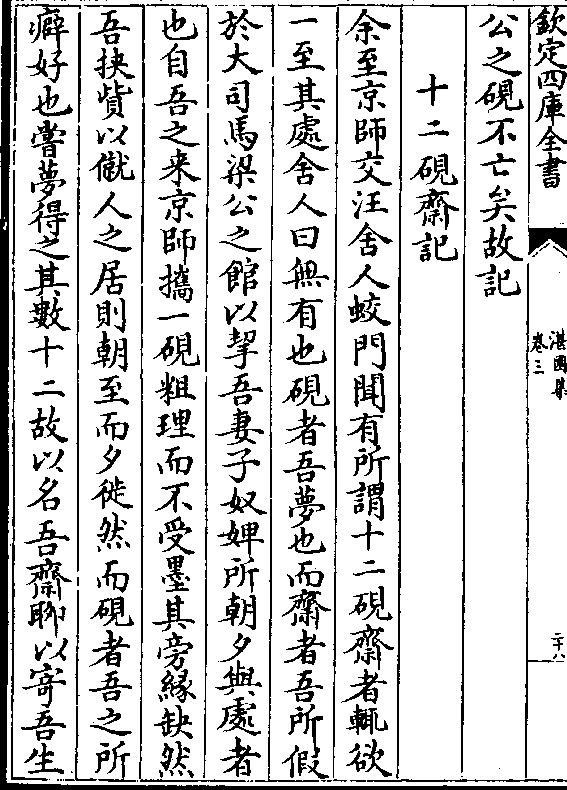 欽定四庫全書
湛園集
卷三
二十八
公之硯不亡矣故記
十二硯齋記
余至京師交汪舍人蛟門聞有所謂十二硯齋者輒欲
一至其處舍人曰無有也硯者吾夢也而齋者吾所假
於大司馬梁公之館以挈吾妻子奴婢所朝夕與處者
也自吾之来京師攜一硯粗理而不受墨其旁緣缺然
吾挾貲以僦人之居則朝至而夕徙然而硯者吾之所
癖好也嘗夢得之其數十二故以名吾齋聊以寄吾生